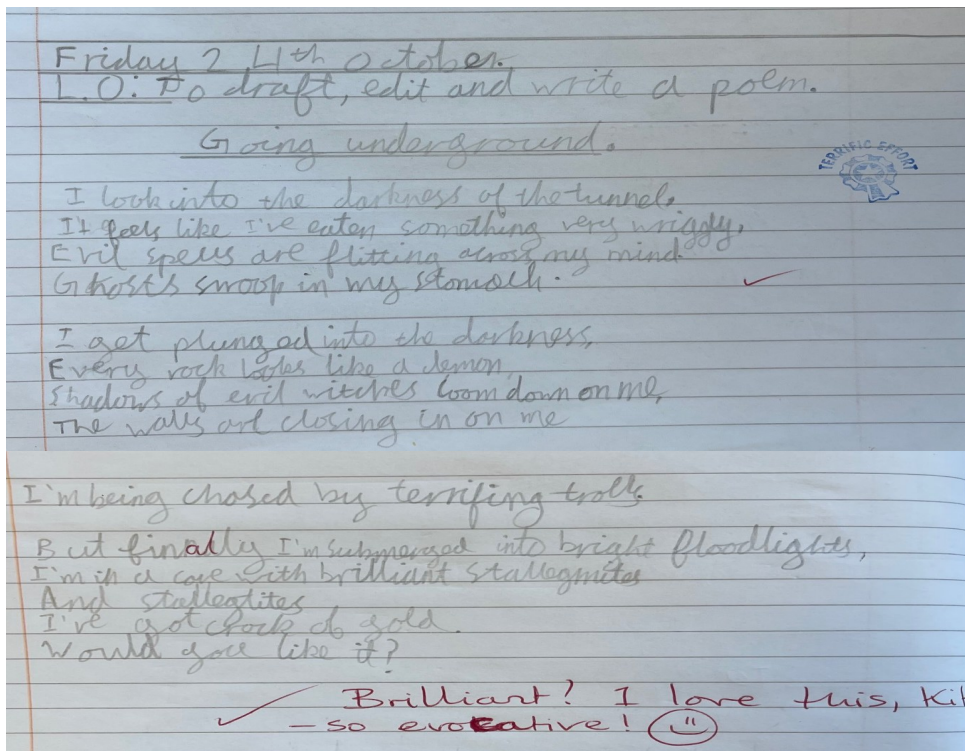 Friday 24th October.
L.O: To draft, edit and write a poem.
Going underground.
TERRIFIC EFFORT
I look into the darkness of the tunnel.
It feels like I've eaten something very wriggly,
Evil spells are flitting across my mind.
Ghosts swoop in my stomach.
I get plunged into the darkness,
Every rock looks like a demon,
Shadows of evil witches loom down on me,
The walls are closing in on me
I'm being chased by terrifing trolls.
But finally I'm submerged into bright floodlights,
I'm in a cave with brilliant stallegmites
And stallegtites
I've got crock of gold.
Would you like it?
Brilliant! I love this,
– so evocative!